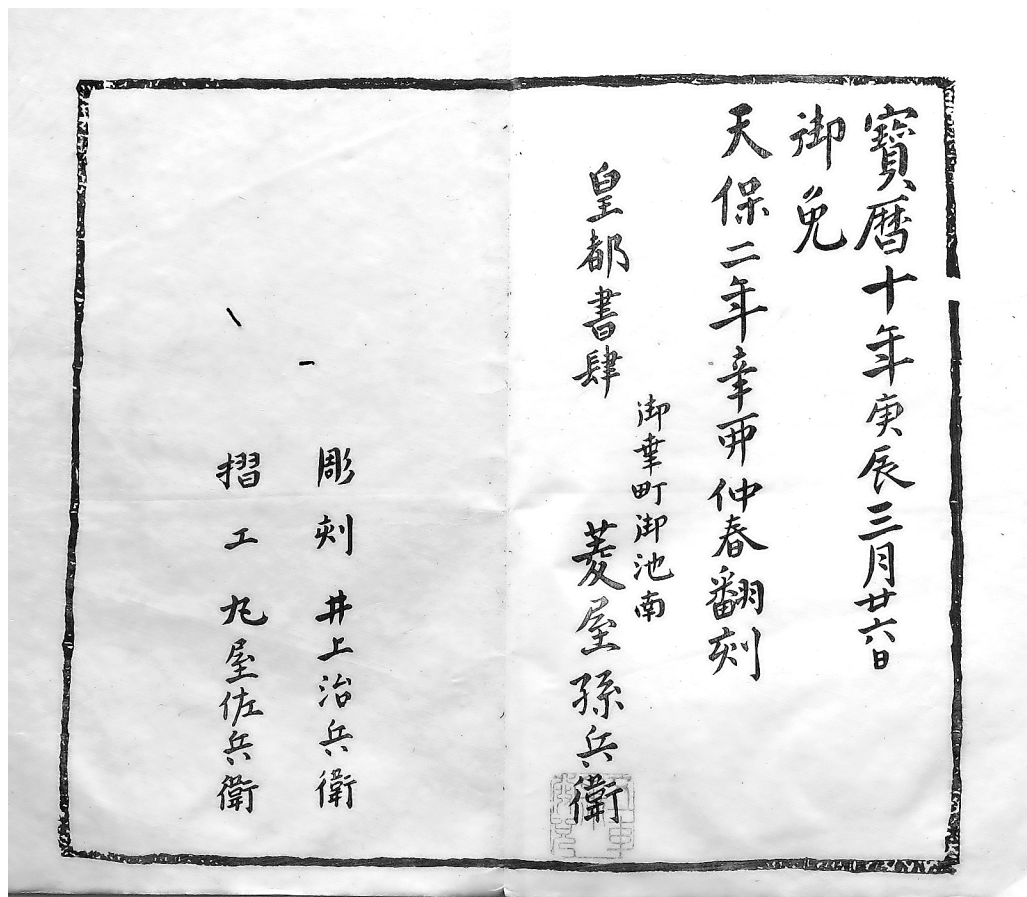 寶暦十年庚辰三月廿六日
御免
天保二年辛卯仲春翻刻
御幸町御池南
皇都書肆 菱屋孫兵衛
彫刻 井上治兵衛
摺工 丸屋佐兵衛